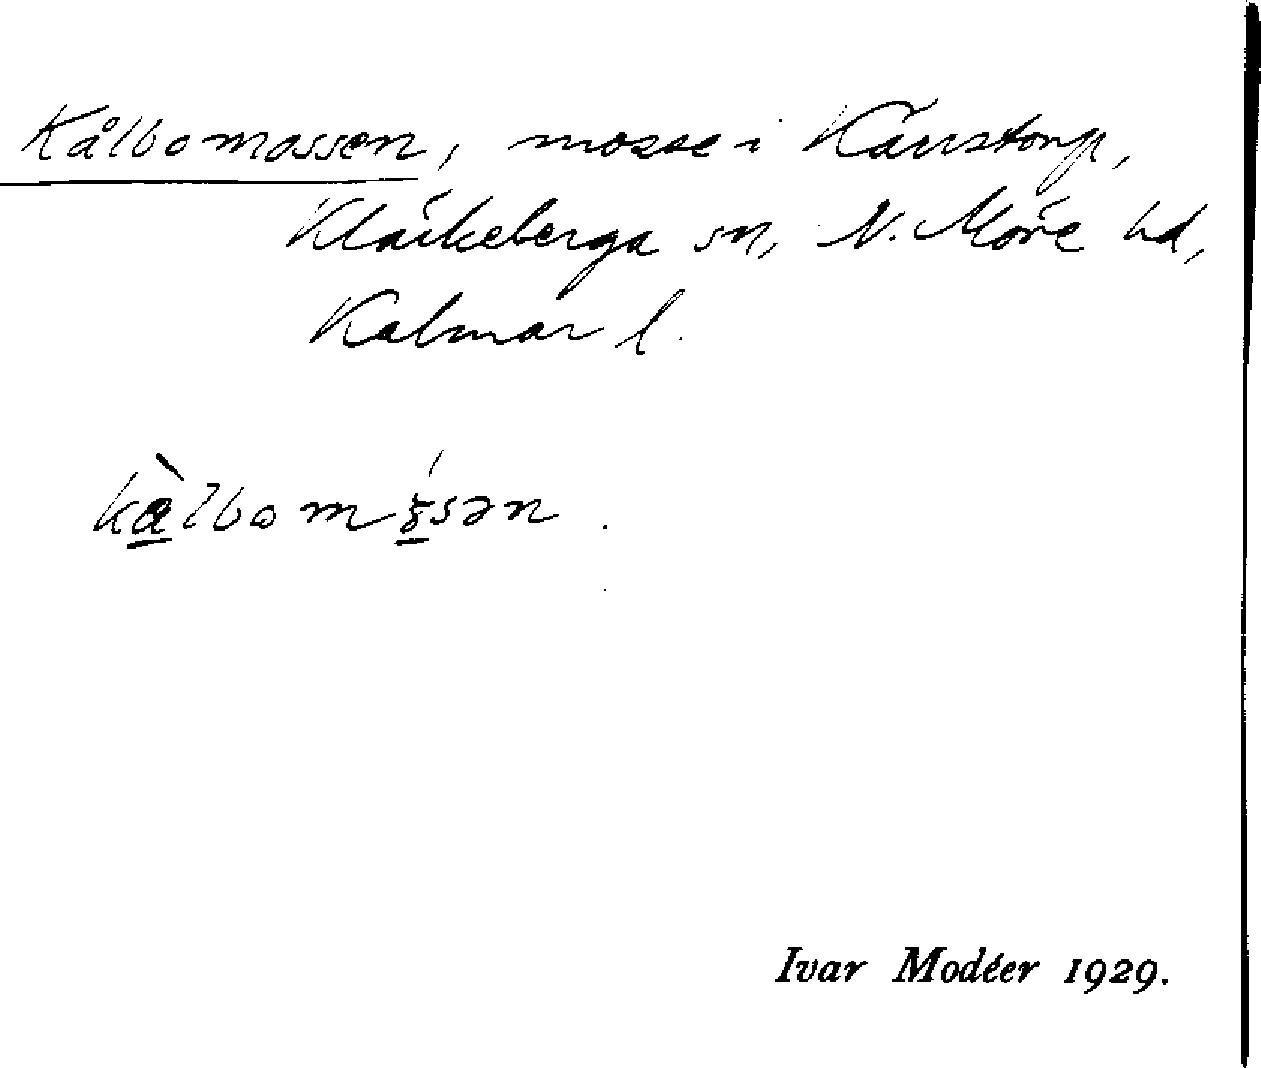 Kålbomossen, mosse i Kärrstorp,
Kläckeberga sn, N. Möre hd,
Kalmar l.
Ivar Modéer 1929.